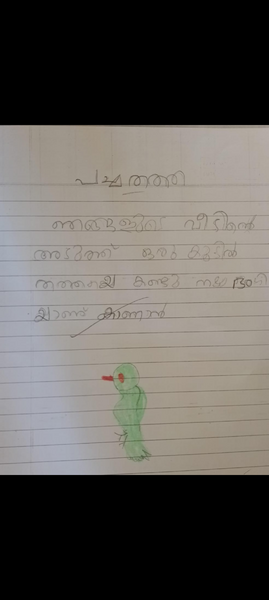 പച്ചതത്ത
ഞങ്ങളുടെ വീടിൻെറ
അടുത്ത് ഒരു കൂട്ടിൽ
തത്തയെ കണ്ടു നല്ല ഭംഗി
യാണ് കാണാൻ